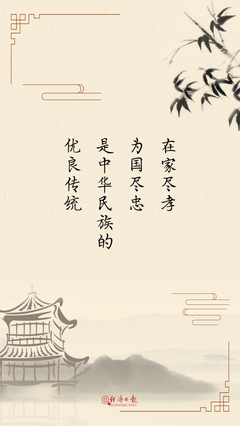 在家尽孝
为国尽忠
是中华民族的
优良传统
@经济日报
ECONOMIC DAILY